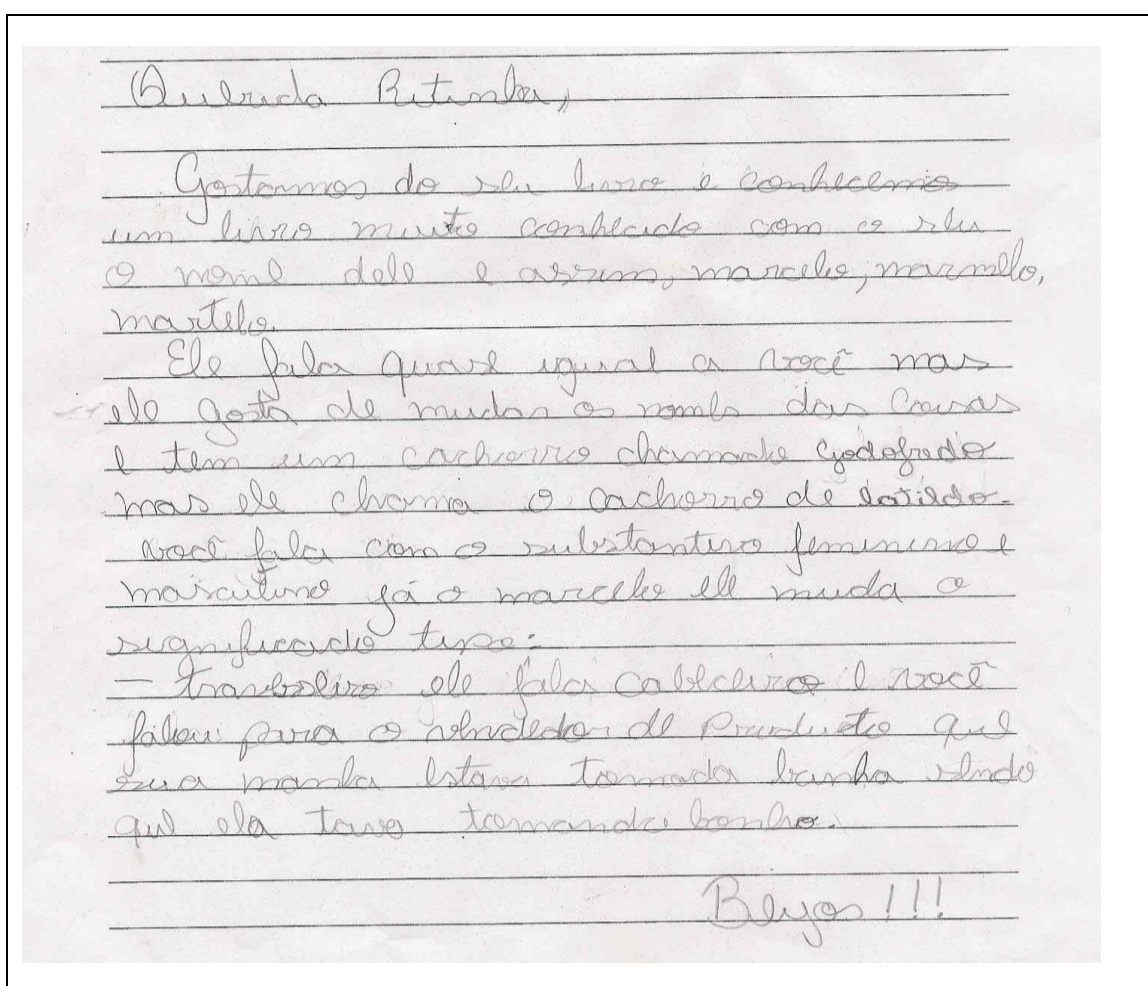 Querida Ritinha,
Gostamos do seu livro e conhecemos
um livro muito conhecido com o seu
o nome dele e assim, marcelo, marmelo,
martelo.
Ele fala quase igual a você mas
ele gosta de mudar os nomes das Coisas
e tem um cachorro chamado Godofredo
mas ele chama o cachorro de latildo.
você fala com o substantivo feminino e
masculino já o marcelo ele muda o
significado tipo:
– travesseiro ele fala cabeceiro e você
falou para o vendedor de Produto que
sua manha estava tomada banha sendo
que ela tava tomando banho.
Beijos!!!